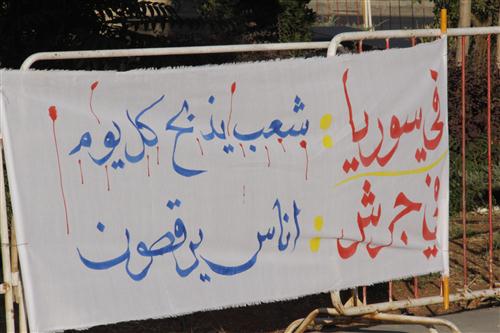 في سوريا : شعب يذبح كل يوم
في جرش : اناس يرقصون